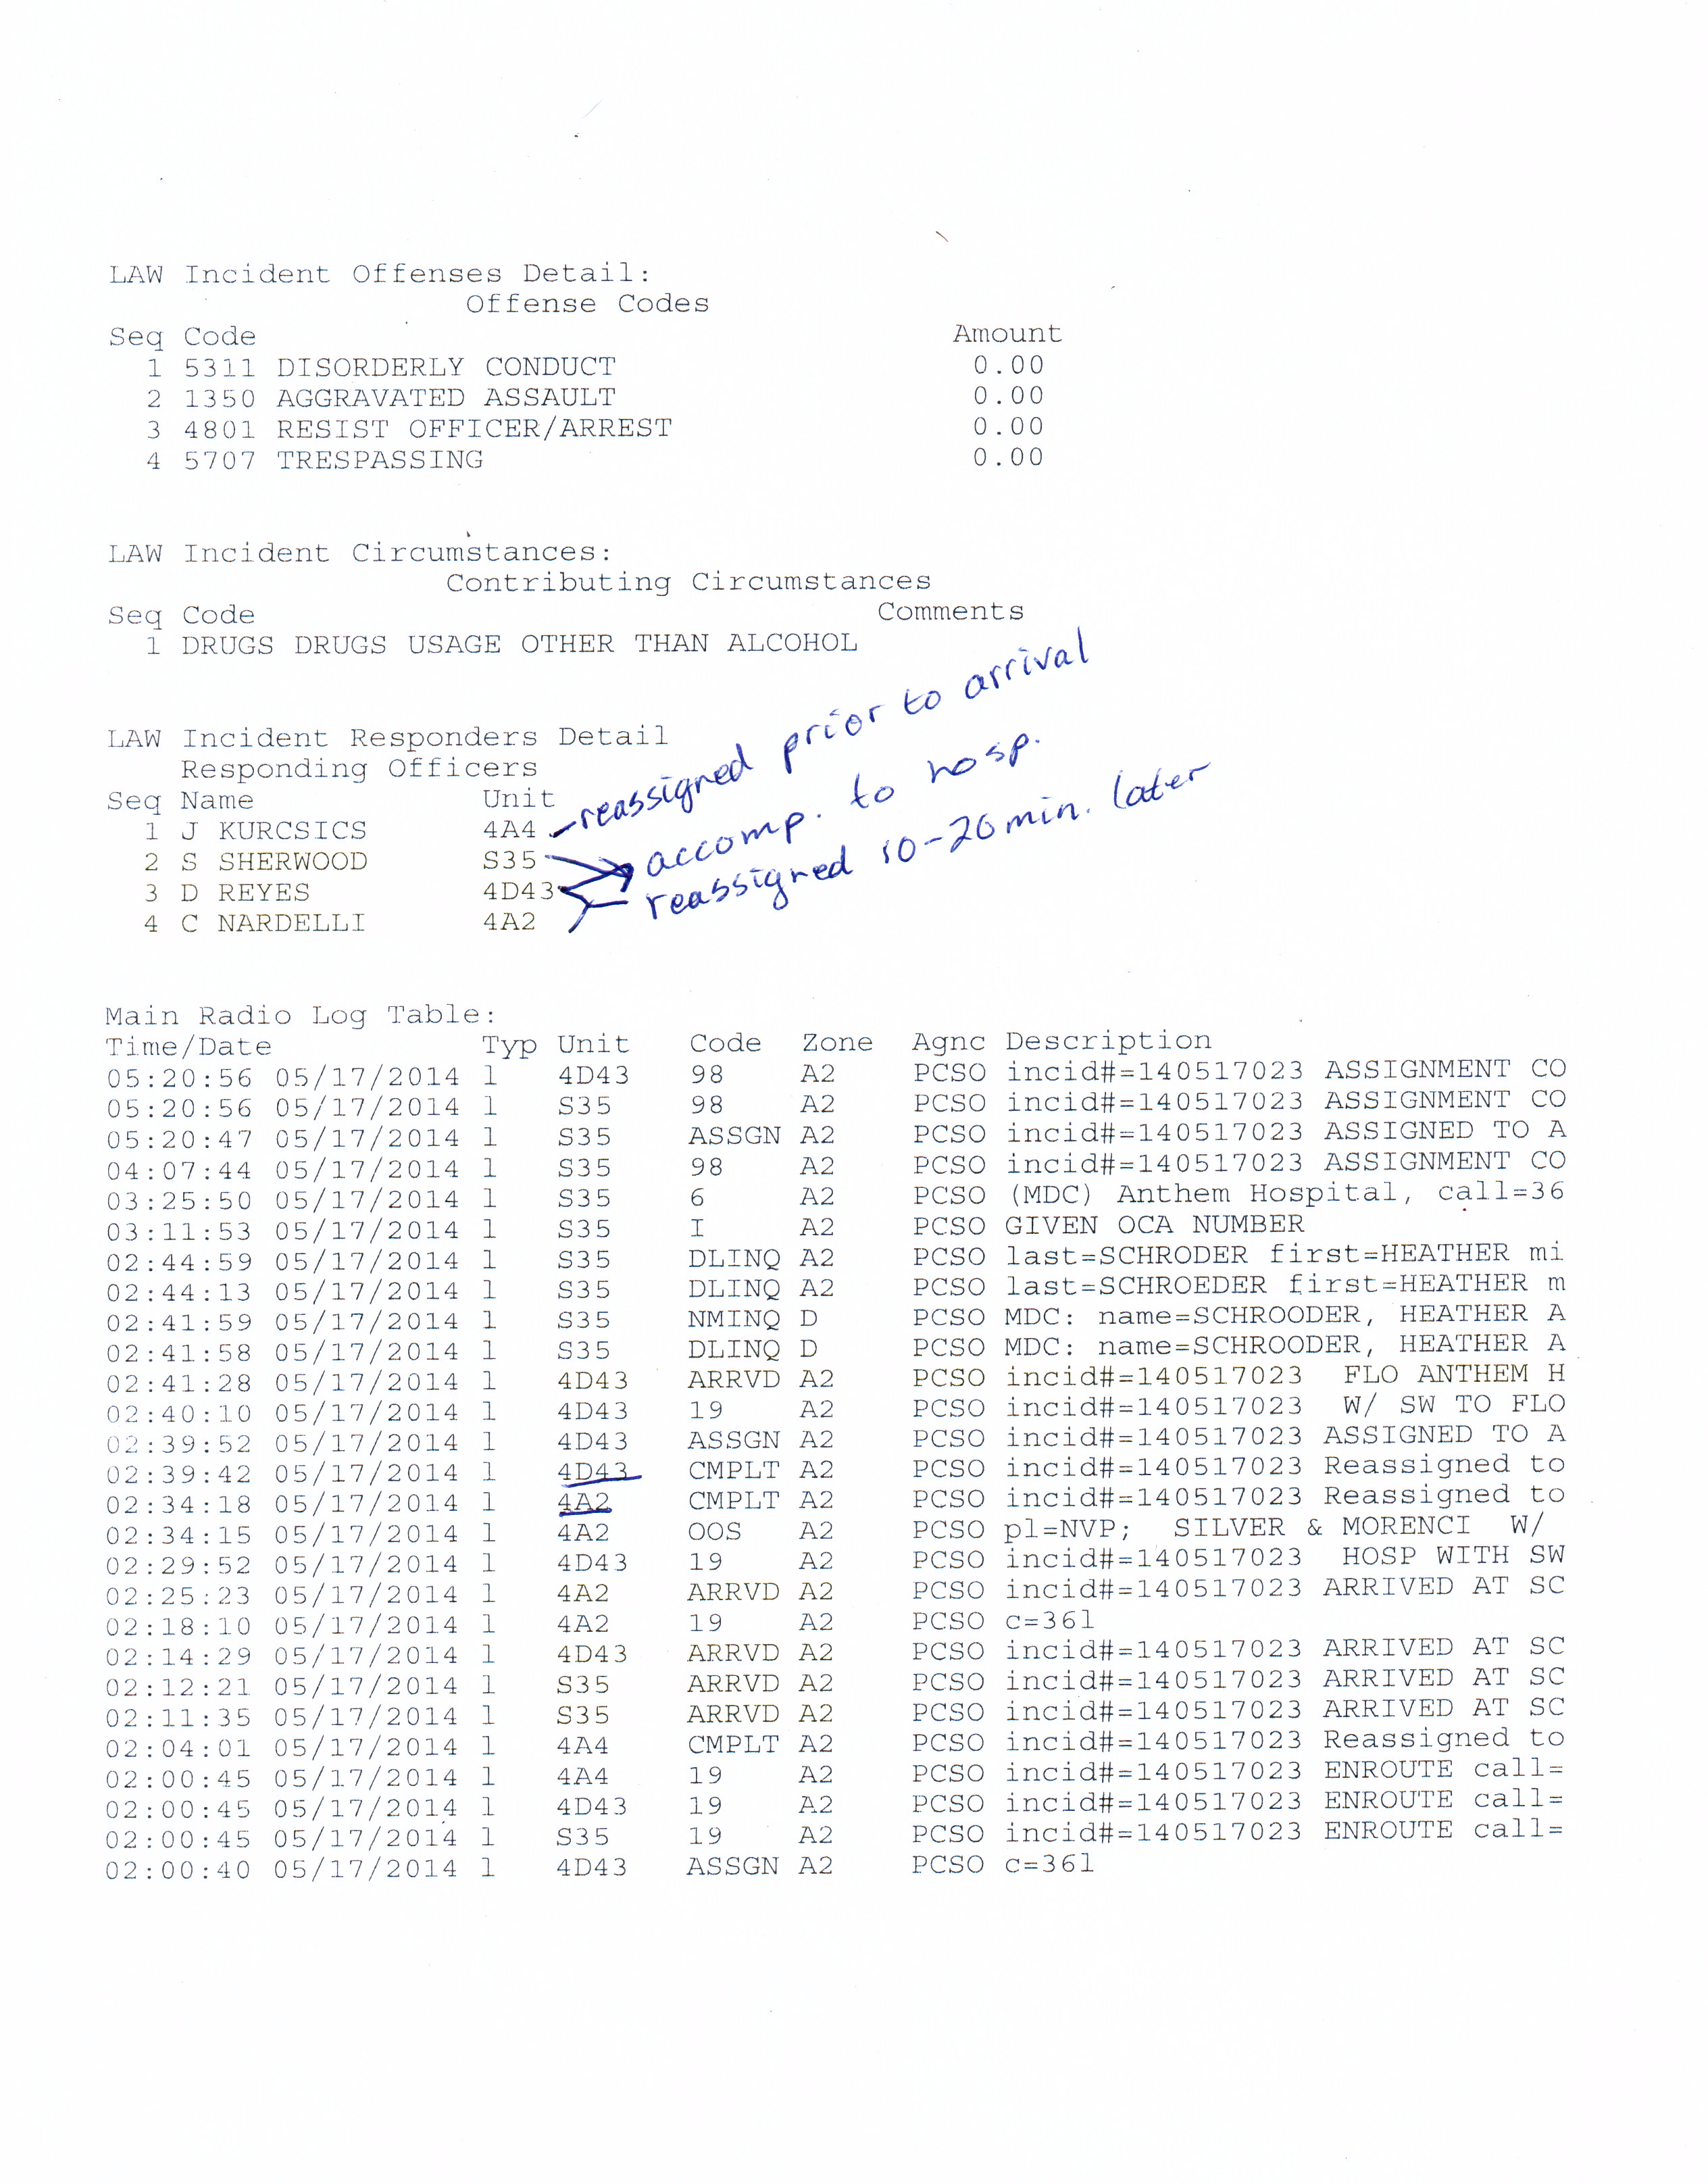 LAW Incident Offenses Detail:
Offense Codes
Seq Code Amount
1 5311 DISORDERLY CONDUCT 0.00
2 1350 AGGRAVATED ASSAULT 0.00
3 4801 RESIST OFFICER/ARREST 0.00
4 5707 TRESPASSING 0.00
LAW Incident Circumstances:
Contributing Circumstances
Seq Code Comments
1 DRUGS DRUGS USAGE OTHER THAN ALCOHOL
LAW Incident Responders Detail
Responding Officers
Seq Name Unit
1 J KURCSICS 4A4 reassigned prior to arrival
2 S SHERWOOD S35 accomp. to hosp.
3 D REYES 4D43 reassigned 10-20 min. later
4 C NARDELLI 4A2
Main Radio Log Table:
Time/Date Typ Unit Code Zone Agnc Description
05:20:56 05/17/2014 1 4D43 98 A2 PCSO incid#=140517023 ASSIGNMENT CO
05:20:56 05/17/2014 1 S35 98 A2 PCSO incid#=140517023 ASSIGNMENT CO
05:20:47 05/17/2014 1 S35 ASSGN A2 PCSO incid#=140517023 ASSIGNED TO A
04:07:44 05/17/2014 1 S35 98 A2 PCSO incid#=140517023 ASSIGNMENT CO
03:25:50 05/17/2014 1 S35 6 A2 PCSO (MDC) Anthem Hospital, call=36
03:11:53 05/17/2014 1 S35 I A2 PCSO GIVEN OCA NUMBER
02:44:59 05/17/2014 1 S35 DLINQ A2 PCSO last=SCHRODER first=HEATHER mi
02:44:13 05/17/2014 1 S35 DLINQ A2 PCSO last=SCHROEDER first=HEATHER m
02:41:59 05/17/2014 1 S35 NMINQ D PCSO MDC: name=SCHROODER, HEATHER A
02:41:58 05/17/2014 1 S35 DLINQ D PCSO MDC: name=SCHROODER, HEATHER A
02:41:28 05/17/2014 1 4D43 ARRVD A2 PCSO incid#=140517023 FLO ANTHEM H
02:40:10 05/17/2014 1 4D43 19 A2 PCSO incid#=140517023 W/ SW TO FLO
02:39:52 05/17/2014 1 4D43 ASSGN A2 PCSO incid#=140517023 ASSIGNED TO A
02:39:42 05/17/2014 1 4D43 CMPLT A2 PCSO incid#=140517023 Reassigned to
02:34:18 05/17/2014 1 4A2 CMPLT A2 PCSO incid#=140517023 Reassigned to
02:34:15 05/17/2014 1 4A2 OOS A2 PCSO pl=NVP; SILVER & MORENCI W/
02:29:52 05/17/2014 1 4D43 19 A2 PCSO incid#=140517023 HOSP WITH SW
02:25:23 05/17/2014 1 4A2 ARRVD A2 PCSO incid#=140517023 ARRIVED AT SC
02:18:10 05/17/2014 1 4A2 19 A2 PCSO c=361
02:14:29 05/17/2014 1 4D43 ARRVD A2 PCSO incid#=140517023 ARRIVED AT SC
02:12:21 05/17/2014 1 S35 ARRVD A2 PCSO incid#=140517023 ARRIVED AT SC
02:11:35 05/17/2014 1 S35 ARRVD A2 PCSO incid#=140517023 ARRIVED AT SC
02:04:01 05/17/2014 1 4A4 CMPLT A2 PCSO incid#=140517023 Reassigned to
02:00:45 05/17/2014 1 4A4 19 A2 PCSO incid#=140517023 ENROUTE call=
02:00:45 05/17/2014 1 4D43 19 A2 PCSO incid#=140517023 ENROUTE call=
02:00:45 05/17/2014 1 S35 19 A2 PCSO incid#=140517023 ENROUTE call=
02:00:40 05/17/2014 1 4D43 ASSGN A2 PCSO c=361